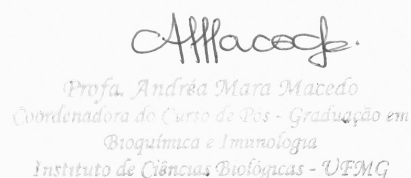 AMacedo.
Profa. Andréa Mara Macedo
Coordenadora do Curso de Pós - Graduação em
Bioquímica e Imunologia
Instituto de Ciências Biológicas - UFMG